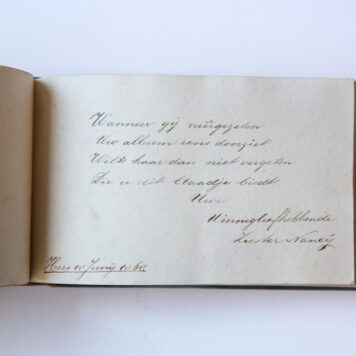 Wanneer gij neêrgezeten
Uw album eens doorziet
Wilt haar dan niet vergeten
Die u dit blaadje biedt
Uwe
U innigliefhebbende
Zuster Nancÿ
Hees 10 Junÿ 1862